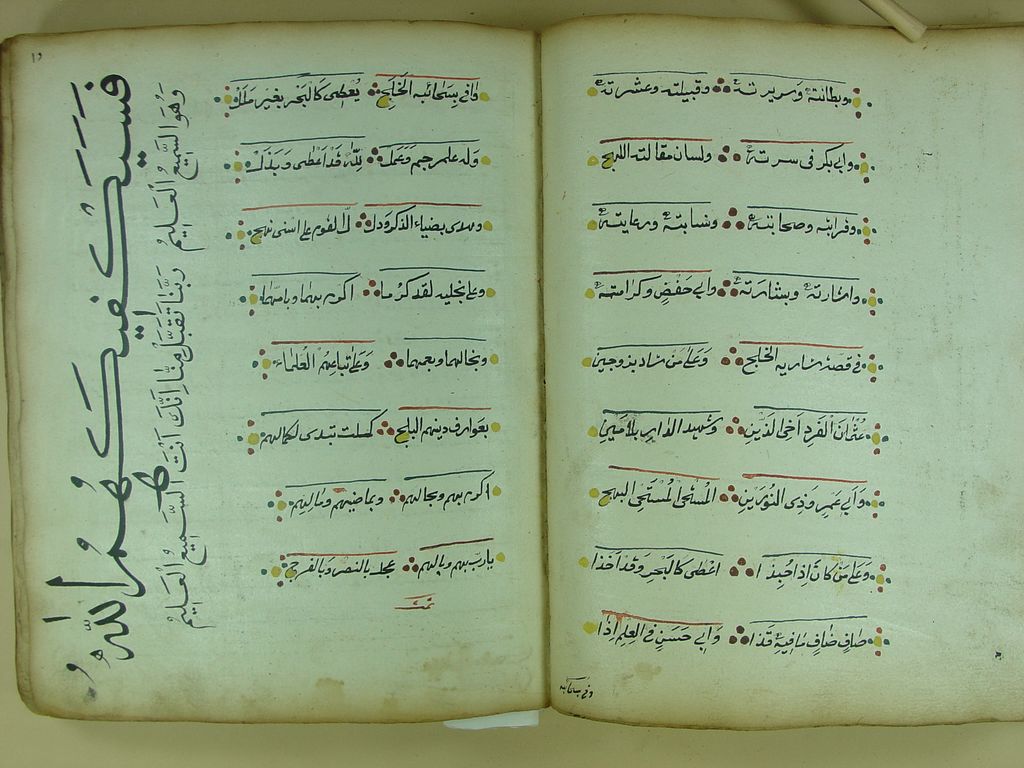 وبطانته وسريرته وقبيلته وعشرته
وابي بكر في سيرته ولسان مقالته اللهج
وقرابته وصحابته ونسابته ورعايته
وامارته وبشارته وابي حفص وكرامته
في قصة سارية الخلج وعلى من زاد بزوجين
عثمان الفرد اخي الذين وشهيد الدار بلا مين
وابي عمر وذي النورين المستحي المستحى البهج
وعلى من كان اذا اخذا اعطى كالبحر وقد اخذا
صاف ضاف وابي حسن في العلم اذا
وافى بسحائبه الخلج يعطي كالبحر بغير ملل
وله علم جم وعمل لله قد اعطى وبذل
وهدى بضياء الذكر ودل القوم على اسنى نهج
وعلى نجليه لقد كرما اكرم بهما وبامهما
وبخالهما وبعمهما وعلى اتباعهم العلماء
بعوارف دينهم البلج كملت تبدى لكمالهم
اكرم بهم وبحالهم وبماضيهم وبتاليهم
يا رب بهم وبآلهم عجل بالنصر وبالفرج
تمت
فسيكفيكهم الله
وهو السميع العليم ربنا تقبل منا انك انت السميع العليم